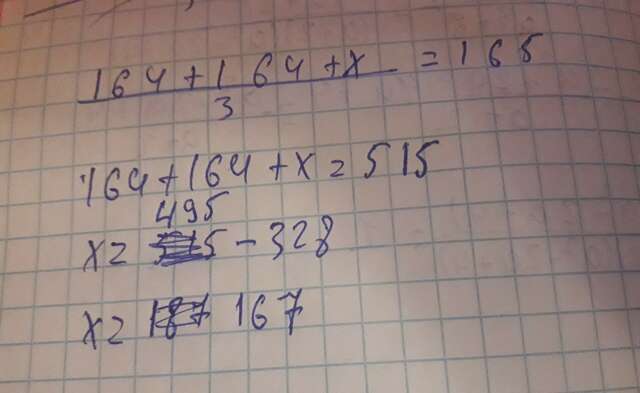 164+164+x = 165
3
164+164+x=515
495
x= 515-328
x= 187 167